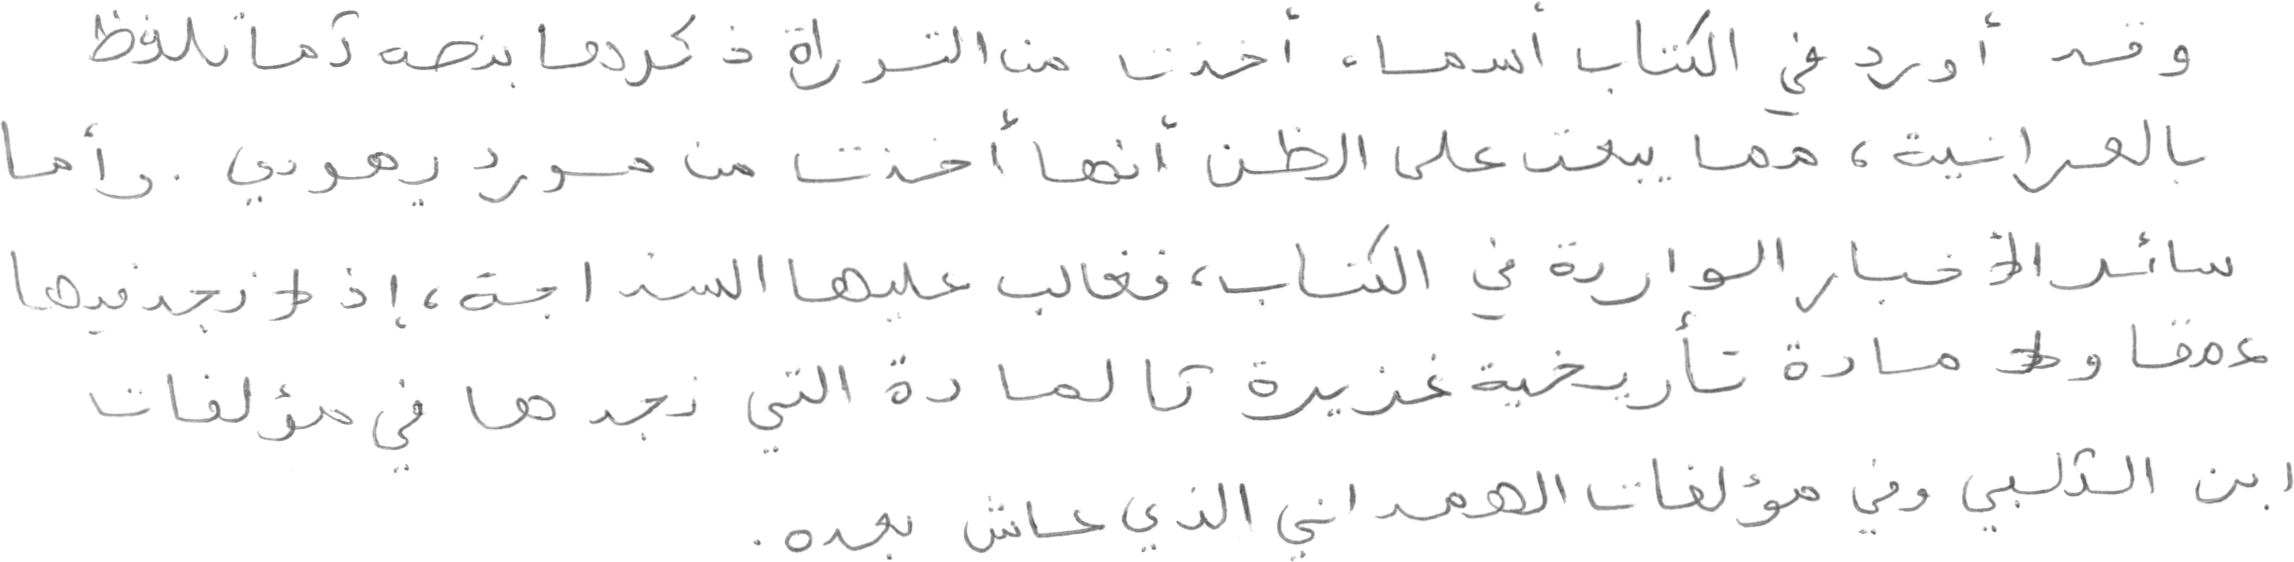 وقد أورد في الكتاب أسماء أخذت من التوراة ذكرها بنصه كما تلفظ
بالعبرانية، مما يبعث على الظن أنها أخذت من مورد يهودي. وأما
سائر الأخبار الواردة في الكتاب، فغالب عليها السذاجة، إذ لا نجد فيها
عمقا ولا مادة تأريخية غزيرة كالمادة التي نجدها في مؤلفات
ابن الكلبي وفي مؤلفات الهمداني الذي عاش بعده.